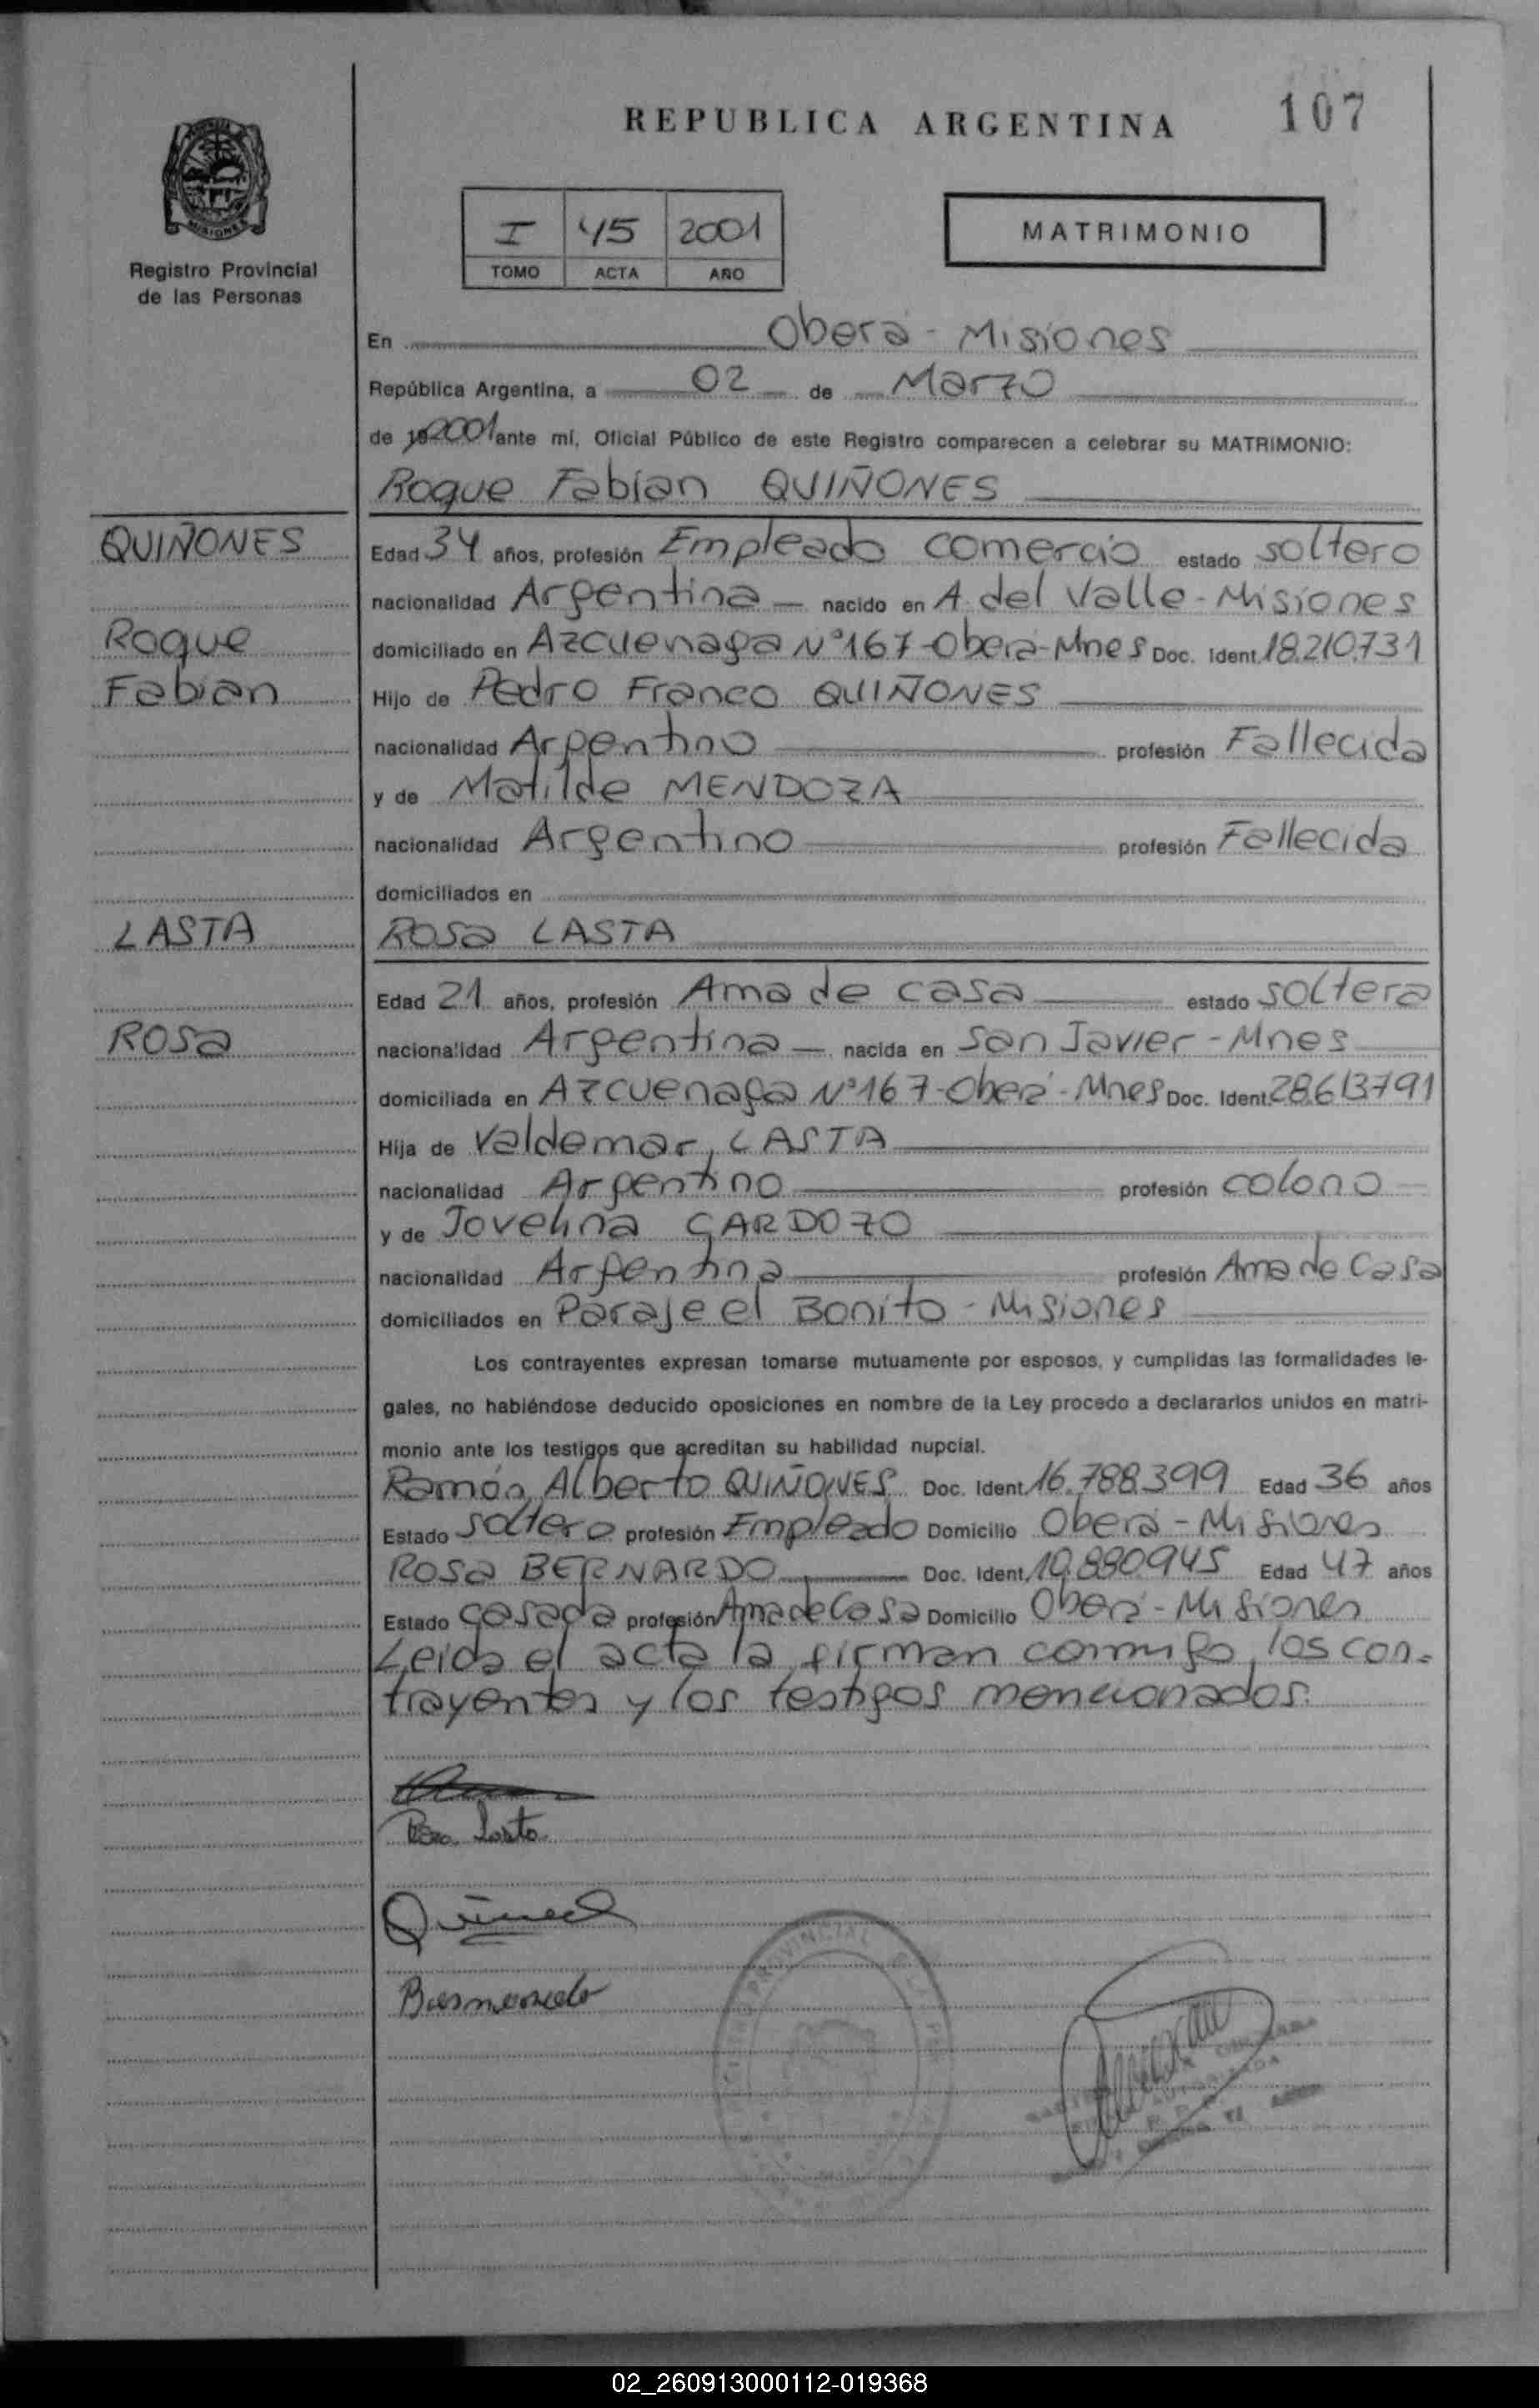 REPUBLICA ARGENTINA 107
MISIONES
Registro Provincial
de las Personas
I 45 2001
TOMO ACTA AÑO
MATRIMONIO
En Oberá - Misiones
República Argentina, a 02 de Marzo
de 19 2001 ante mí, Oficial Público de este Registro comparecen a celebrar su MATRIMONIO:
Roque Fabian QUIÑONES
QUIÑONES
Edad 34 años, profesión Empleado comercio estado soltero
nacionalidad Argentina nacido en A. del Valle - Misiones
Roque
domiciliado en Azcuenaga Nº 167 - Oberá - Mnes Doc. Ident. 18.210.731
Fabian
Hijo de Pedro Franco QUIÑONES
nacionalidad Argentino profesión Fallecida
y de Matilde MENDOZA
nacionalidad Argentino profesión Fallecida
domiciliados en
LASTA
Rosa LASTA
Edad 21 años, profesión Ama de casa estado soltera
Rosa
nacionalidad Argentina nacida en San Javier - Mnes
domiciliada en Azcuenaga Nº 167 - Oberá - Mnes Doc. Ident. 28.613.791
Hija de Valdemar, LASTA
nacionalidad Argentino profesión colono
y de Jovelina CARDOZO
nacionalidad Argentina profesión Ama de Casa
domiciliados en Paraje el Bonito - Misiones
Los contrayentes expresan tomarse mutuamente por esposos, y cumplidas las formalidades le-
gales, no habiéndose deducido oposiciones en nombre de la Ley procedo a declararlos unidos en matri-
monio ante los testigos que acreditan su habilidad nupcial.
Ramón Alberto QUIÑONES Doc. Ident. 16.788.399 Edad 36 años
Estado soltero profesión Empleado Domicilio Oberá - Misiones
Rosa BERNARDO Doc. Ident. 10.880.945 Edad 47 años
Estado casada profesión Ama de Casa Domicilio Oberá - Misiones
Leida el acta la firman conmigo, los con-
trayentes y los testigos mencionados.
Rosa Lasta
PROVINCIAL
02_260913000112-019368